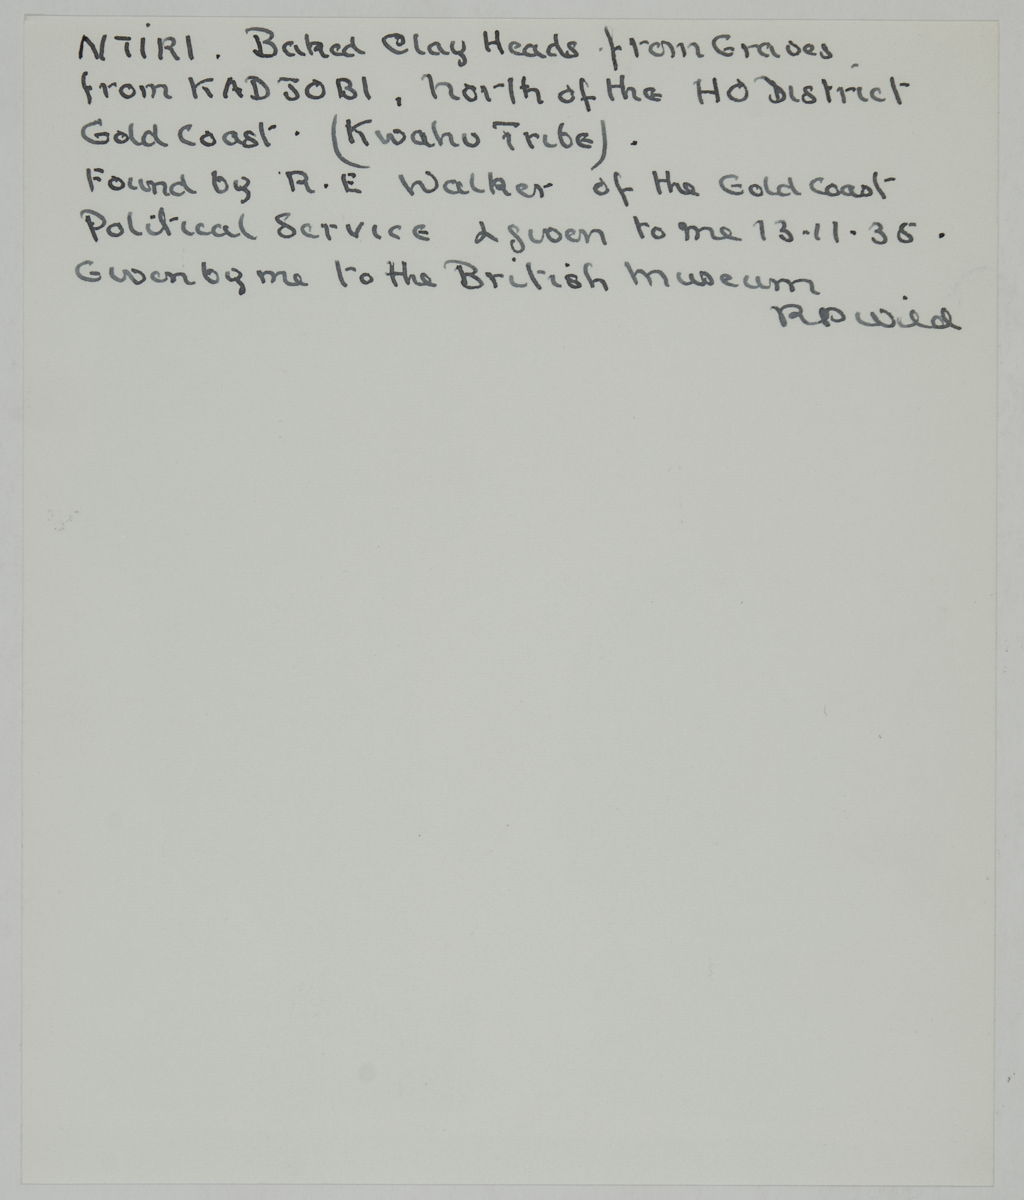 NTIRI. Baked Clay Heads from Graves
from KADJOBI, north of the HO District
Gold Coast. (Kwahu Tribe).
Found by R.E Walker of the Gold Coast
Political Service & given to me 13-11-35.
Given by me to the British Museum
RP Wild